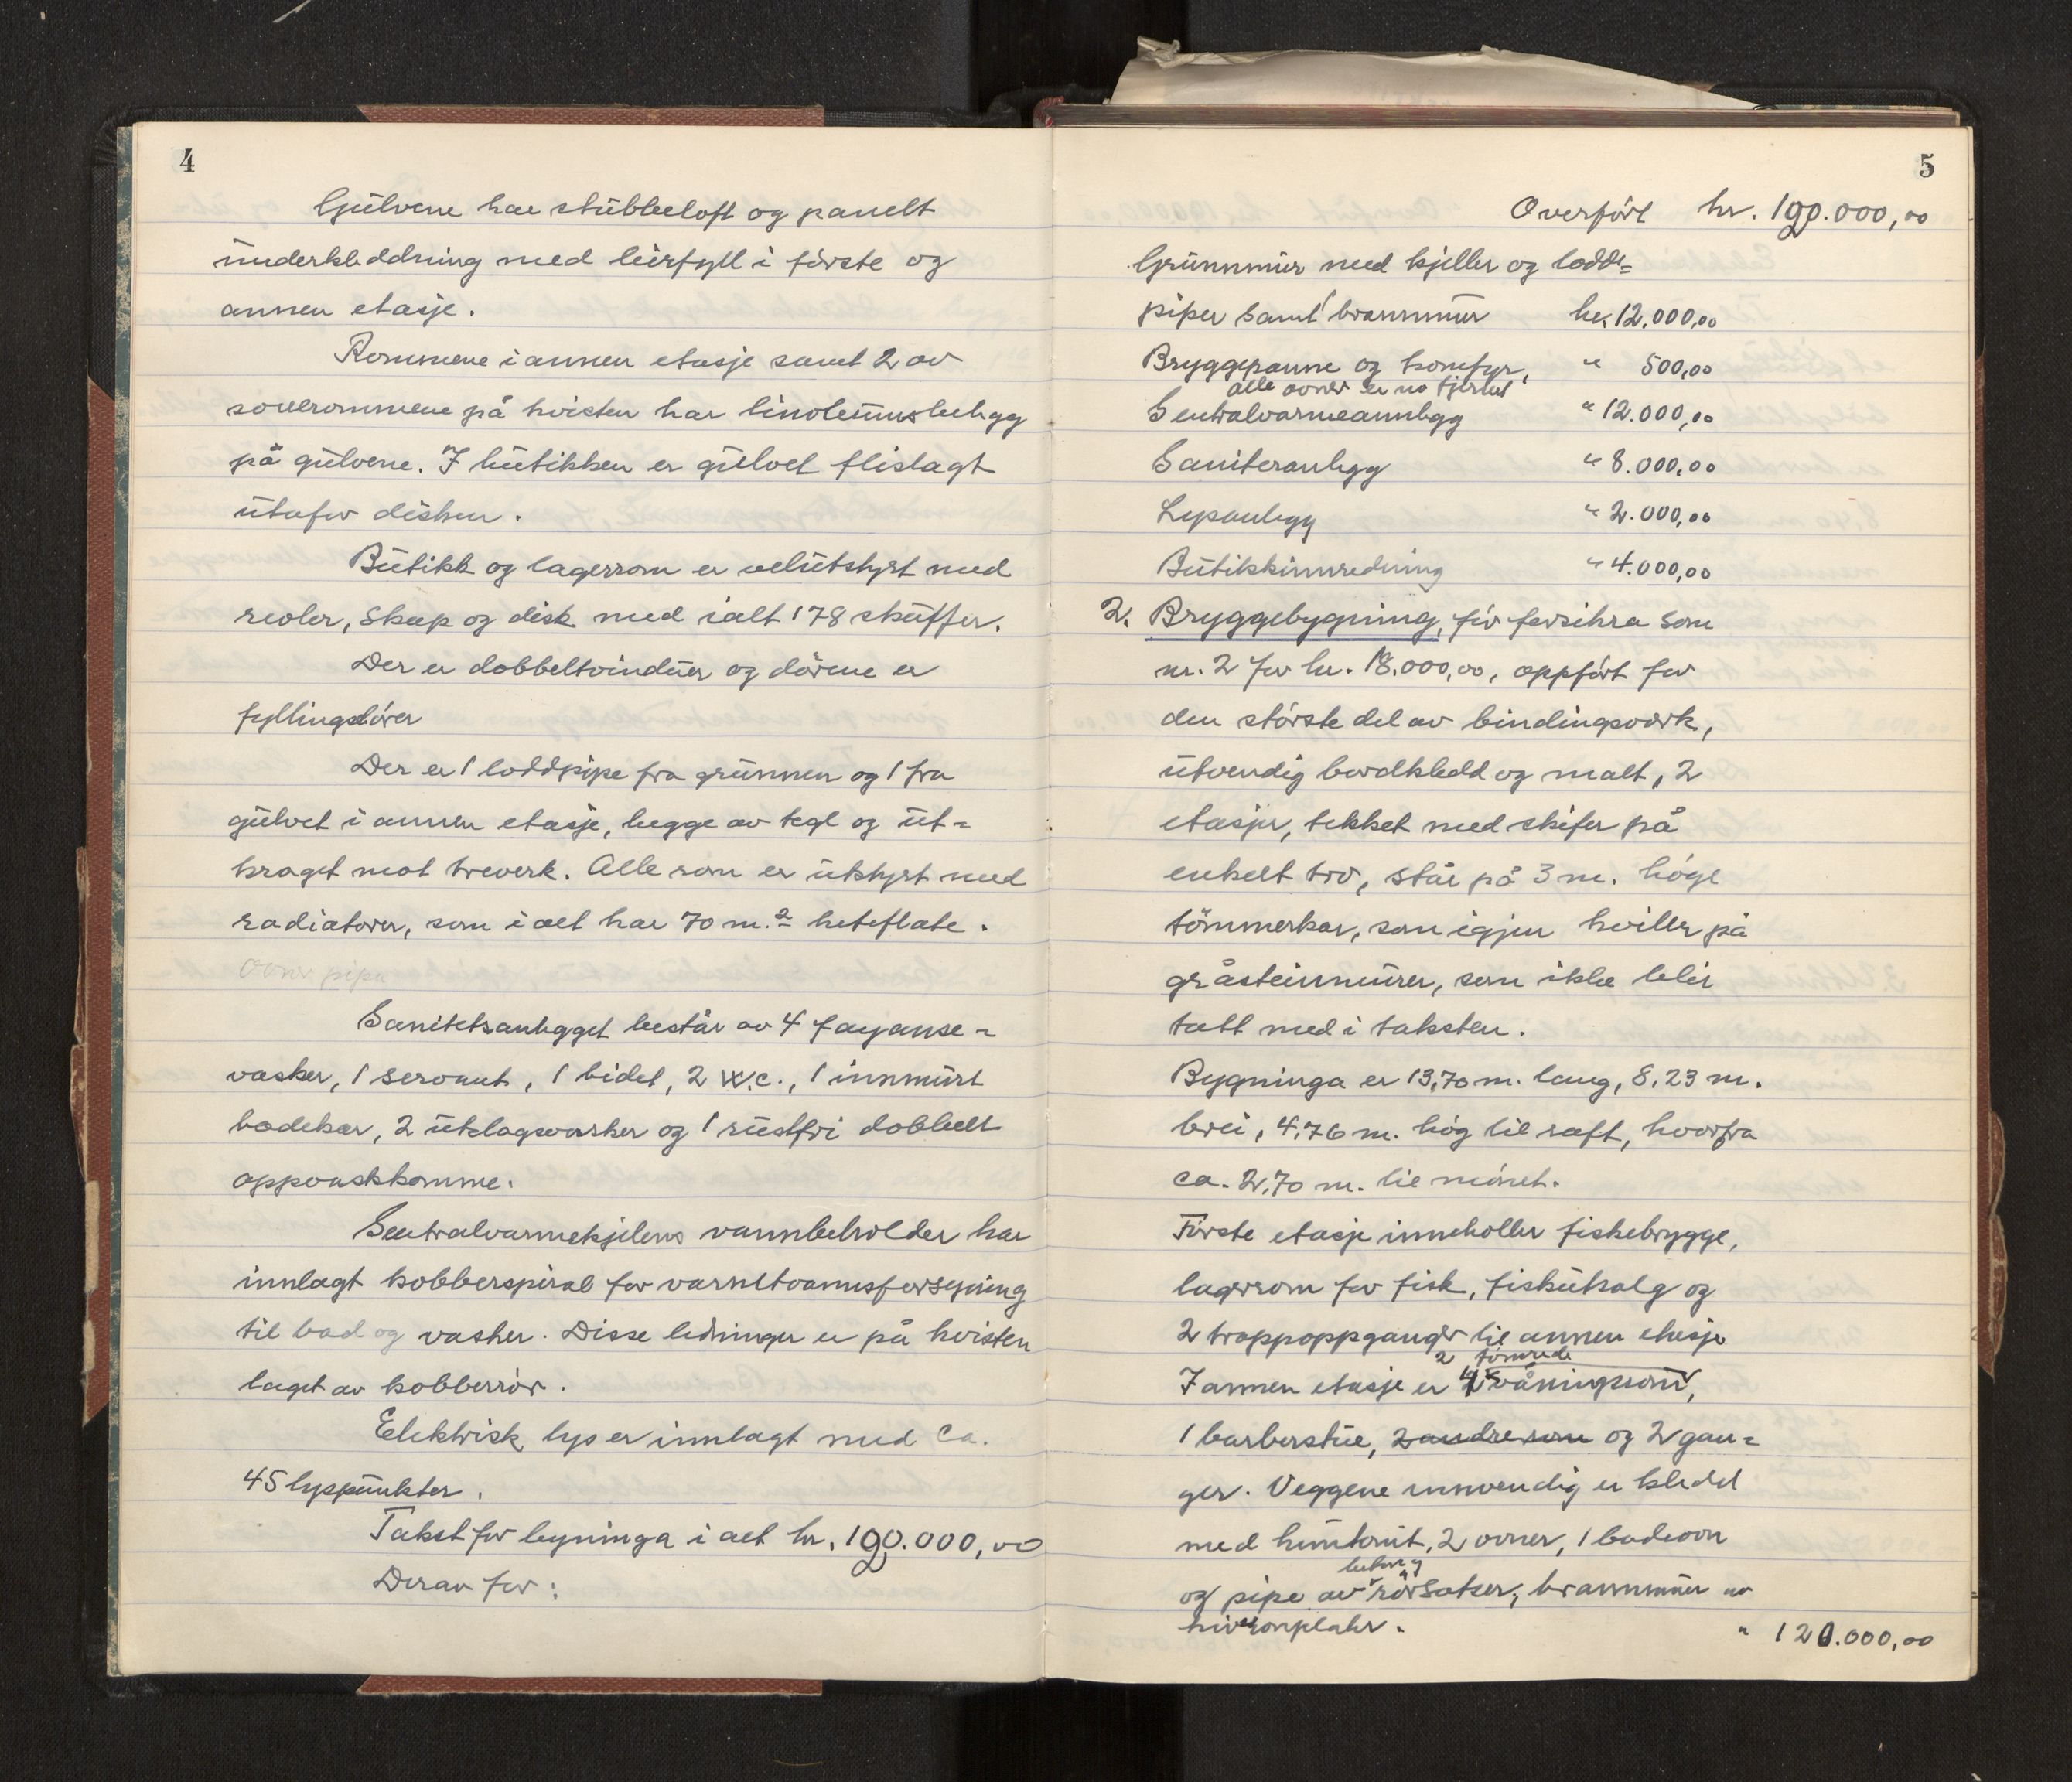 4
Gulvene har stubbeloft og panelt
underkledning med leirfyll i første og
annen etasje.
Rommene i annen etasje samt 2 av
soverommene på kvisten har linoleumsbelegg
på gulvene. I butikken er gulvet flislagt
utafor disken.
Butikk og lagerrom er velutstyrt med
reoler, skap og disk med ialt 178 skuffer.
Der er dobbeltvinduer og dörene er
fyllingsdører
Der er 1 loddpipe fra grunnen og 1 fra
gulvet i annen etasje, begge av tegl og ut-
kraget mot treverk. Alle rom er utstyrt med
radiatorer, som i alt har 70 m.² heteflate.
Over pipa
Sanitetsanlegget består av 4 fayanse-
vasker, 1 servant, 1 bidet, 2 w.c., 1 innmurt
badekar, 2 utslagsvasker og 1 rustfri dobbelt
oppvaskkomme.
Sentralvarmekjelens vannbeholder har
innlagt kobberspiral for varmtvannsforsyning
til bad og vasker. Disse ledninger er på kvisten
laget av kobberrör.
Elektrisk lys er innlagt med ca.
45 lyspunkter.
Takst for bygninga i alt kr. 190.000,00
Derav for:
5
Overført kr. 190.000,00
Grunnmur med kjeller og lodd-
piper samt brannmur kr. 12.000,00
Bryggepanne og komfyr, " 500,00
alle ovner er no fjernet
Sentralvarmeannlegg " 12.000,00
Saniteranlegg " 8.000,00
Lysanlegg " 2.000,00
Butikkinnredning " 4.000,00
2. Bryggebygning, før forsikra som
nr. 2 for kr. 18.000,00, oppført for
den største del av bindingsverk,
utvendig bordkledd og malt, 2
etasjer, tekket med skifer på
enkelt tro, står på 3 m. höge
tömmerkar, som igjen hviller på
gråsteinmurer, som ikke blir
tatt med i taksten.
Bygninga er 13,70 m. lang, 8,23 m.
brei, 4,76 m. høg til raft, hvorfra
ca. 2,70 m. til mønet.
Første etasje inneholler fiskebrygge,
lagerrom for fisk, fiskutsalg og
2 trappoppganger til annen etasje
2
I annen etasje er 4 våningsrom,
1 barberstue, 2 andre rom og 2 gan-
ger. Veggene innvendig er kledd
med huntonit, 2 ovner, 1 badeovn
betong
og pipe av rörsatser, brannmur av
" 120.000,00